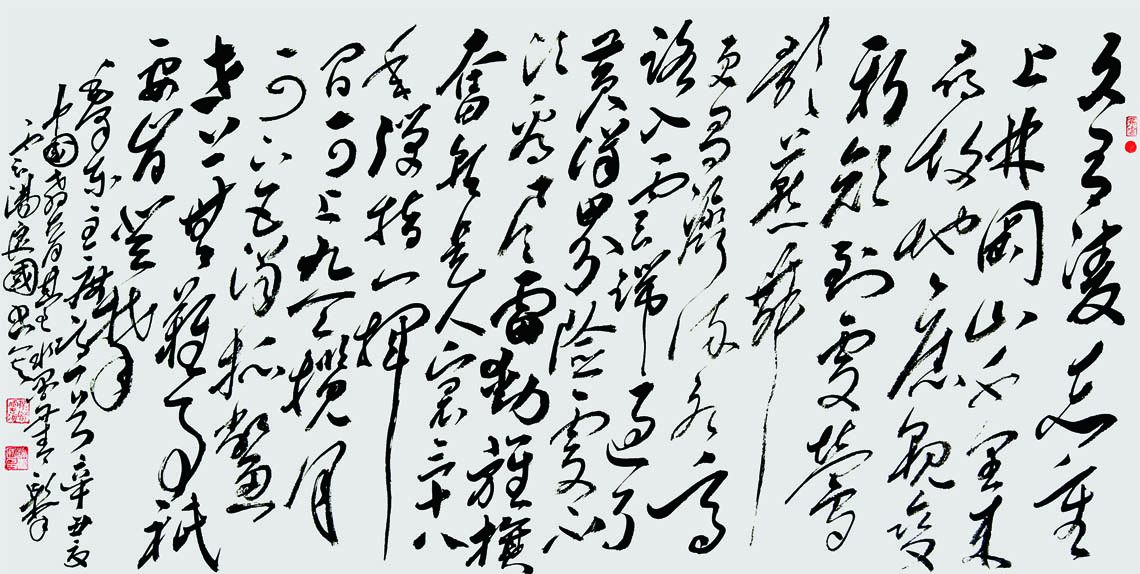 久有凌志重
上井冈山千里来
寻故地旧貌变
新颜到处莺
歌燕舞
更有潺潺流水高
路入云端过了
黄洋界险处不
须看风雷动旌旗
奋是人寰三十八
年弹指一挥
间可上九天揽月
可下五洋捉鳖
世上无难事只
要肯登攀
毛泽东主席词一首辛丑夏
中国
国书